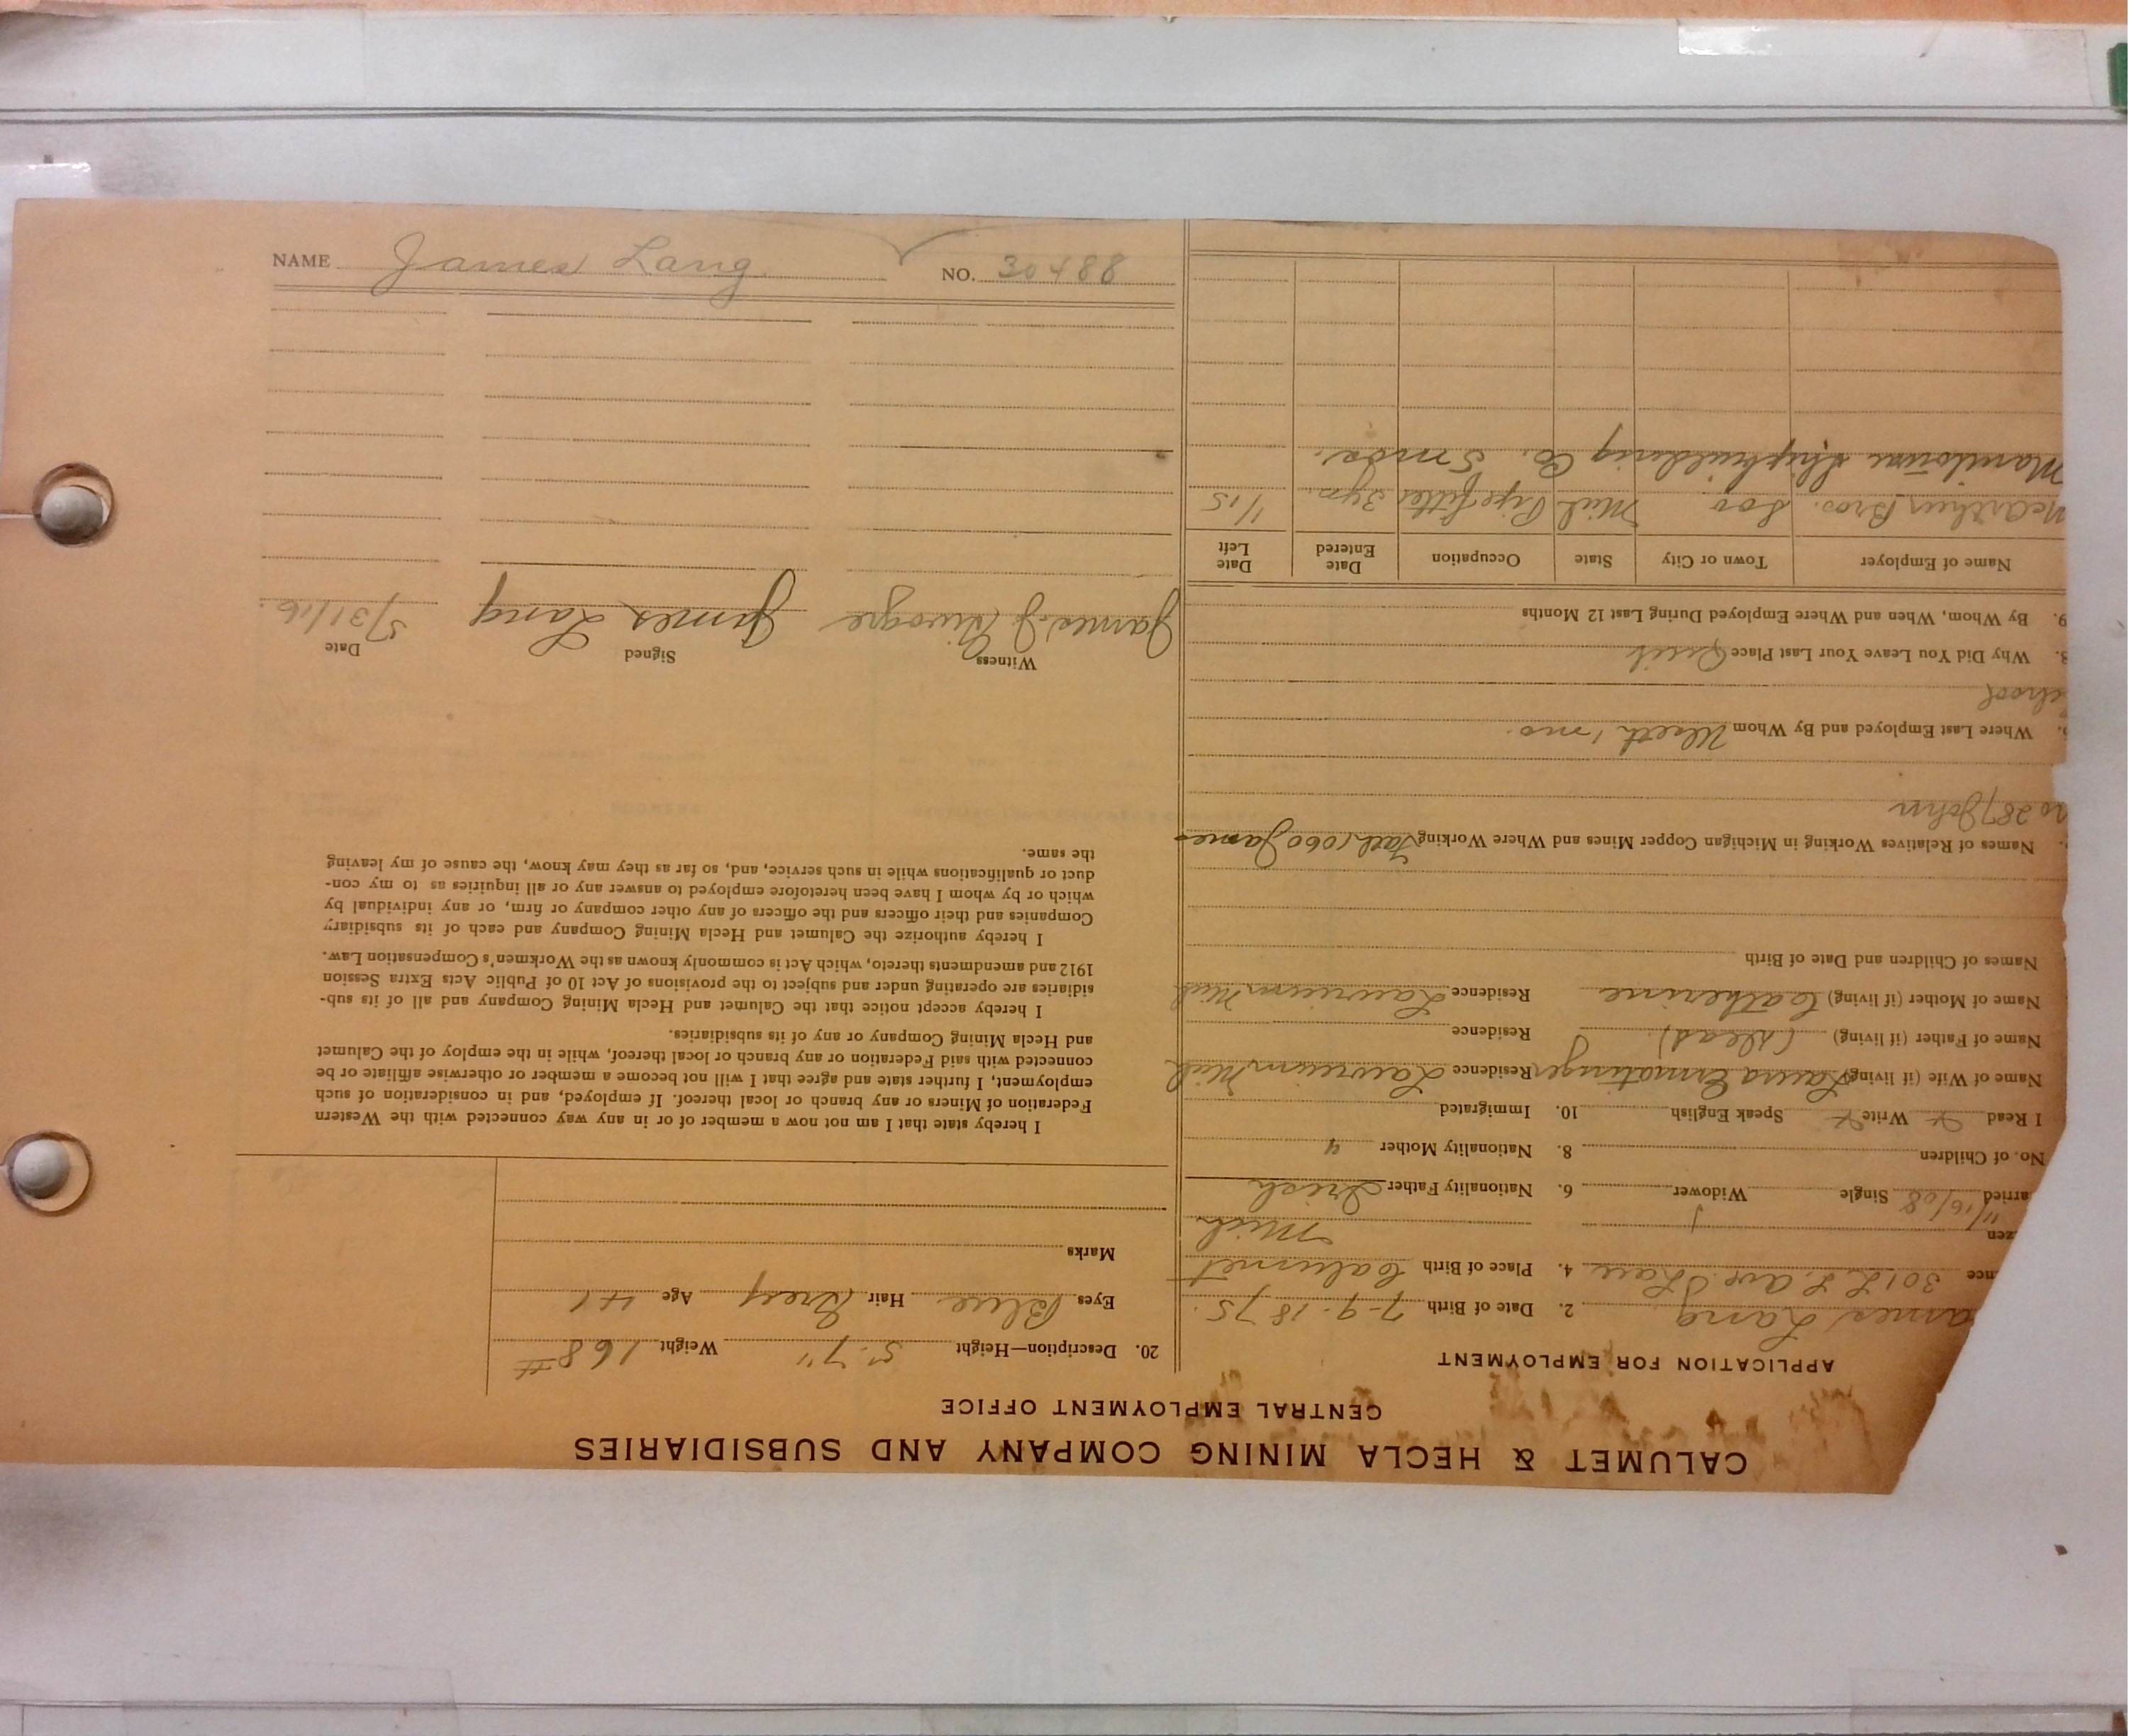 CALUMET & HECLA MINING COMPANY AND SUBSIDIARIES
CENTRAL EMPLOYMENT OFFICE
APPLICATION FOR EMPLOYMENT
ames Lang 2. Date of Birth 7-9-1875.
nce 301 L. L. ave 4. Place of Birth Calumet
zen Mich
11/16/08
arried Single Widower 6. Nationality Father Irish
No. of Children 8. Nationality Mother "
I Read x Write x Speak English 10. Immigrated
Name of Wife (if living) Laura Ermatinger Residence Laurium Mich
Name of Father (if living) (dead) Residence
Name of Mother (if living) Catherine Residence Laurium Mich
Names of Children and Date of Birth
Names of Relatives Working in Michigan Copper Mines and Where Working 1060 James
no 287 John
Where Last Employed and By Whom 1 mo.
chool
8. Why Did You Leave Your Last Place Quit
9. By Whom, When and Where Employed During Last 12 Months
Name of Employer Town or City State Occupation Date Entered Date Left
McArthur Bros. Soo Mich Pipefitter 3 yrs. 1/15
Manitowoc Shipbuilding Co. 5 mos.
20. Description—Height 5'-7" Weight 168 #
Eyes Blue Hair Grey Age 41
Marks
I hereby state that I am not now a member of or in any way connected with the Western
Federation of Miners or any branch or local thereof. If employed, and in consideration of such
employment, I further state and agree that I will not become a member or otherwise affiliate or be
connected with said Federation or any branch or local thereof, while in the employ of the Calumet
and Hecla Mining Company or any of its subsidiaries.
I hereby accept notice that the Calumet and Hecla Mining Company and all of its sub-
sidiaries are operating under and subject to the provisions of Act 10 of Public Acts Extra Session
1912 and amendments thereto, which Act is commonly known as the Workmen's Compensation Law.
I hereby authorize the Calumet and Hecla Mining Company and each of its subsidiary
Companies and their officers and the officers of any other company or firm, or any individual by
which or by whom I have been heretofore employed to answer any or all inquiries as to my con-
duct or qualifications while in such service, and, so far as they may know, the cause of my leaving
the same.
Witness Signed Date
James J James Lang 5/31/16.
NAME James Lang NO. 30488